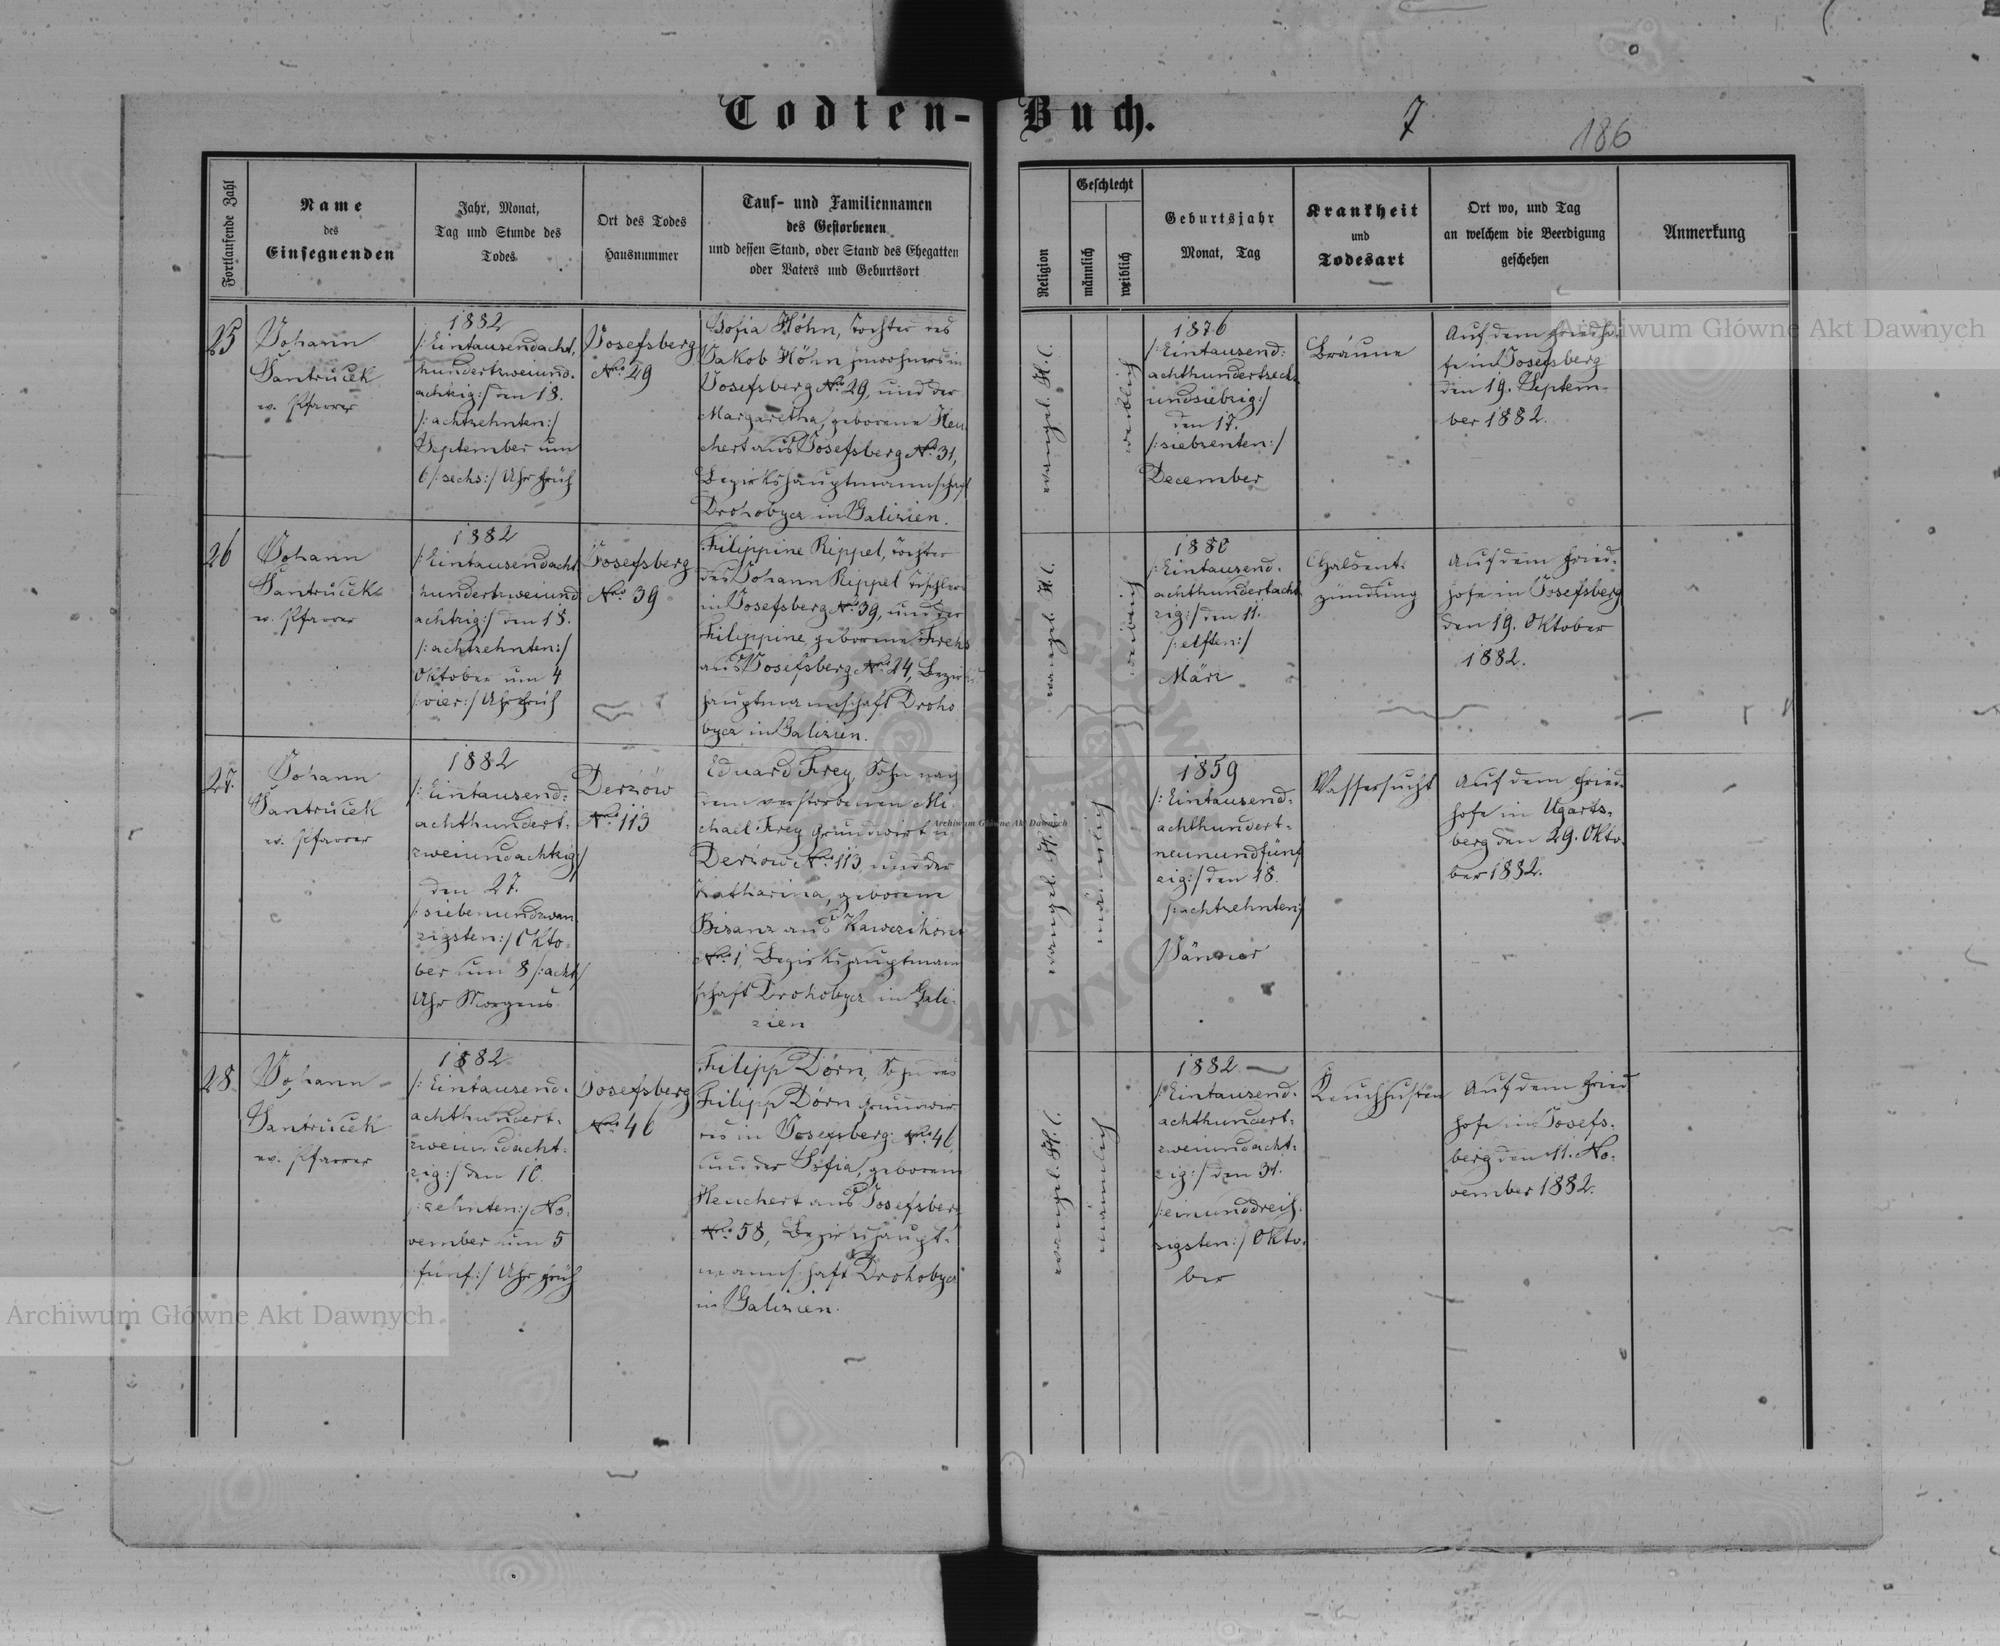 Todten-Buch.
7
186
Fortlaufende Zahl
Name
des
Einsegnenden
Jahr, Monat,
Tag und Stunde des
Todes
Ort des Todes
Hausnummer
Tauf- und Familiennamen
des Gestorbenen
und dessen Stand, oder Stand des Ehegatten
oder Vaters und Geburtsort
Religion
Geschlecht
männlich
weiblich
Geburtsjahr
Monat, Tag
Krankheit
und
Todesart
Ort wo, und Tag
an welchem die Beerdigung
geschehen
Anmerkung
25
Johann
Santruček
ev. Pfarrer
1882
/:Eintausendacht-
hundertzweiund-
achtzig:/ den 18.
/:achtzehnten:/
September um
6 /:sechs:/ Uhr früh
Josefsberg
No. 29
Sofia Höhn, Tochter des
Jakob Höhn Inwohners in
Josefsberg No. 29, und der
Margaretha, geborene Heu
chert aus Josefsberg No. 31,
Bezirkshauptmannschaft
Drohobycz in Galizien.
evangel. H. C.
weiblich
1876
/:Eintausend:
achthundertsechs
undsiebzig:/
den 17.
/:siebzenten:/
December
Bräune
Auf dem Friedho-
fe in Josefsberg
den 19. Septem-
ber 1882.
26
Johann
Santruček
ev. Pfarrer
1882
/:Eintausendacht
hundertzweiund
achtzig:/ den 18.
/:achtzehnten:/
Oktober um 4
/:vier:/ Uhr früh
Josefsberg
No. 39
Filippine Rippel, Tochter
des Johann Rippel Tischlers
in Josefsberg No. 39, und der
Filippine geborene Frehs
aus Josefsberg No. 24, Bezirks
hauptmannschaft Droho
bycz in Galizien.
evangel. H. C.
weiblich
1880
/:Eintausend-
achthundertacht
zig:/ den 11.
/:elften:/
März
Halsent-
zündung
Auf dem Fried-
hofe in Josefsberg
den 19. Oktober
1882.
27.
Johann
Santruček
ev. Pfarrer
1882
/:Eintausend:
achthundert-
zweiundachtzig:/
den 27.
/:siebenundzwan
zigsten:/ Okto-
ber um 8 /:acht:/
Uhr Morgens
Derżów
No. 113
Eduard Frey, Sohn nach
dem verstorbenen Mi-
chael Frey Grundwirt in
Derżow No. 113 und der
Katharina, geborene
Bisanz aus
No. 1, Bezirkshauptmann
schaft Drohobycz in Gali-
zien
evangel. H. C.
männlich
1859
/:Eintausend-
achthundert-
neunundfünf
zig:/ den 18.
/:achtzehnten:/
Jänner
Wassersucht
Auf dem Fried-
hofe in Ugarts-
berg den 29. Okto-
ber 1882.
28.
Johann
Santruček
ev. Pfarrer
1882
/:Eintausend-
achthundert-
zweiundacht-
zig:/ den 10.
/:zehnten:/ No-
vember um 5
/:fünf:/ Uhr früh
Josefsberg
No. 46
Filipp Dörn, Sohn des
Filipp Dörn Grundwir-
tes in Josefsberg No. 46,
und der Sofia, geborene
Heuchert aus Josefsberg
No. 58, Bezirkshaupt-
mannschaft Drohobycz
in Galizien.
evangel. H. C.
männlich
1882
/:Eintausend-
achthundert-
zweiundacht-
zig:/ den 31.
/:einunddreiß-
zigsten:/ Okto-
ber
Keuchhusten
Auf dem Fried
hofe in Josefs-
berg den 11. No-
vember 1882.
Archiwum Główne Akt Dawnych
Archiwum Główne Akt Dawnych
Archiwum Główne Akt Dawnych